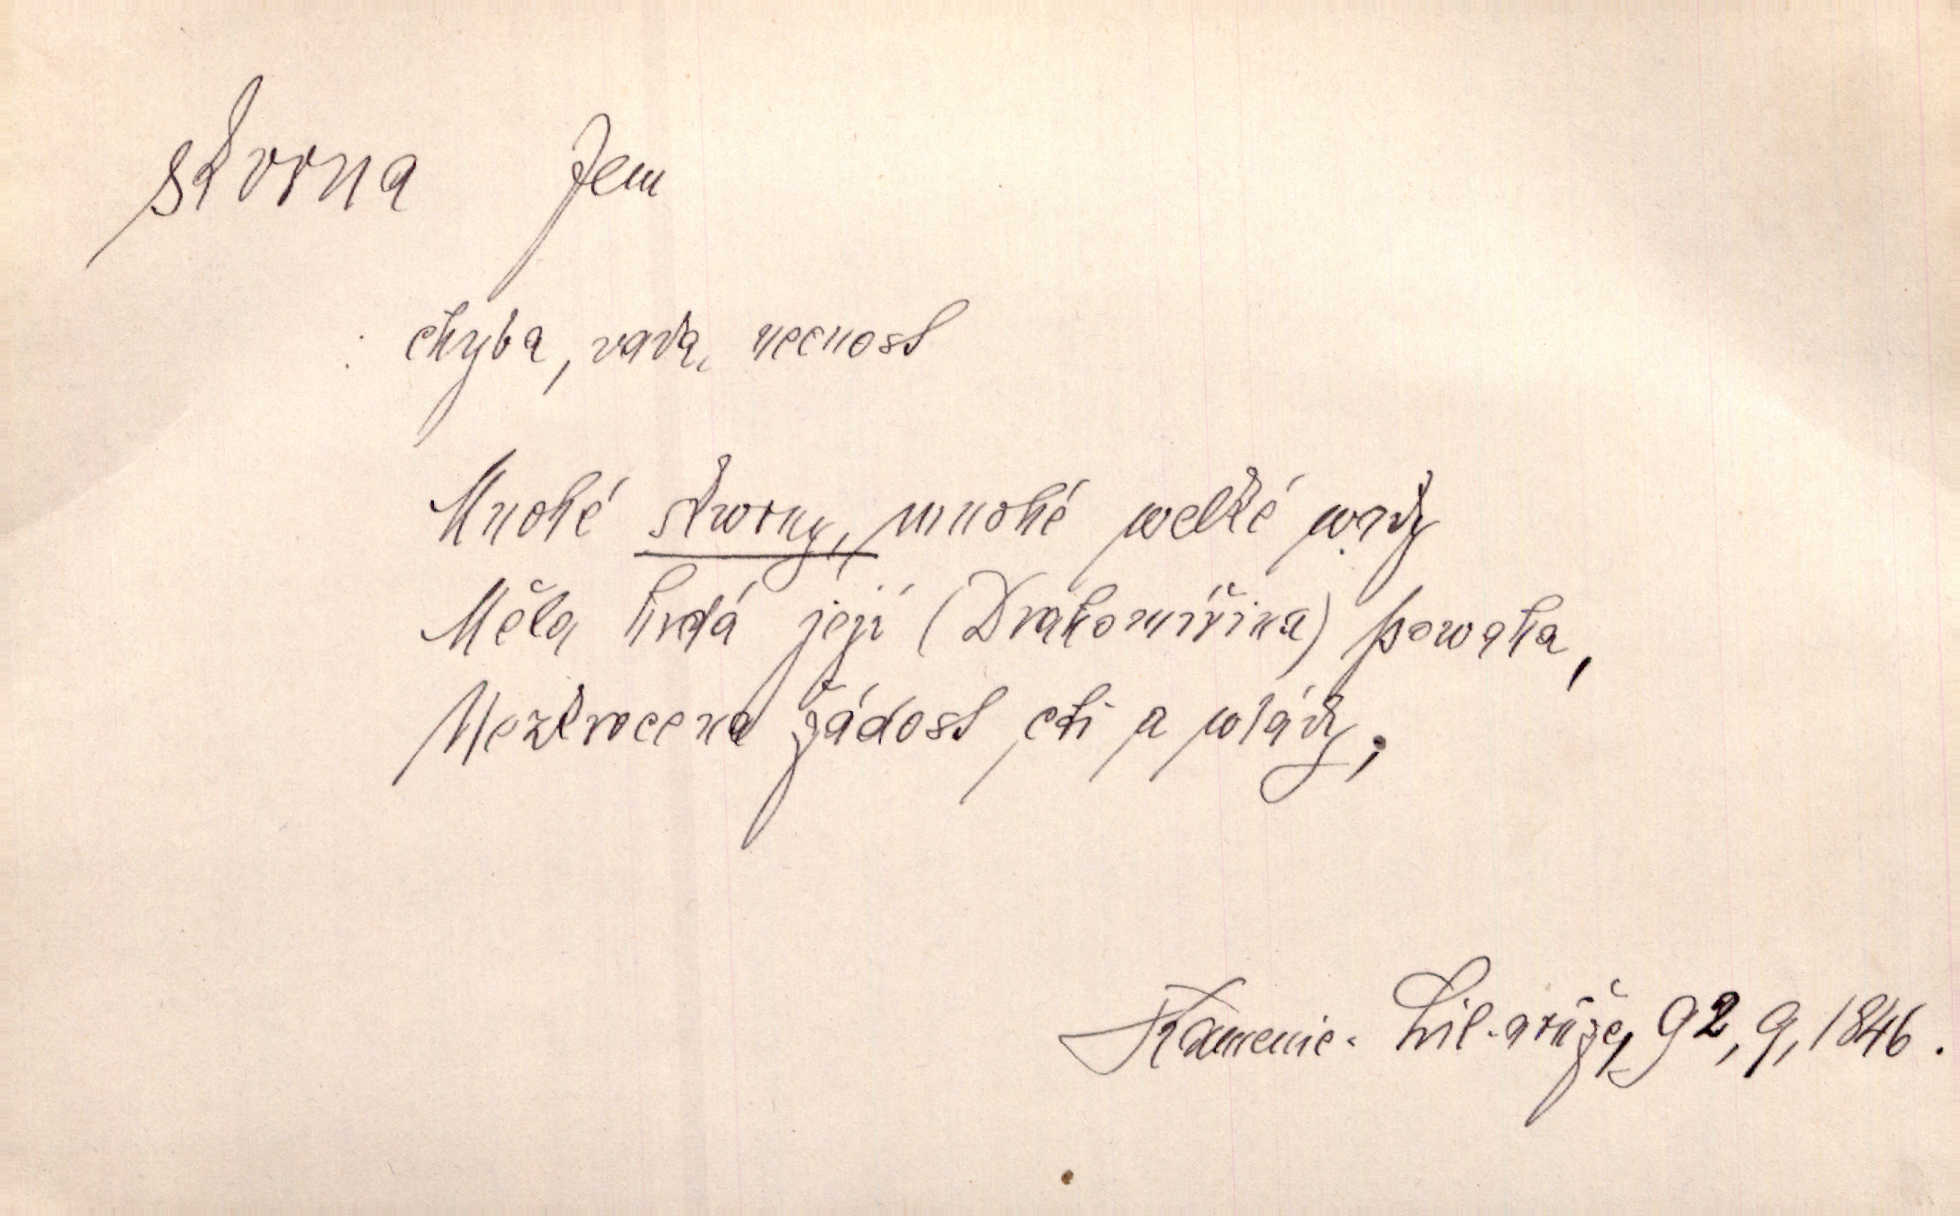 skvrna fem
chyba, vada, necnost
Mnohé skwrny, mnohé welké wady
Měla hrdá její (Drahomířina) powaha,
Nezkrocena žádost cti a wlády;
Kamenic. Lil. a růže, 92, 9, 1846.